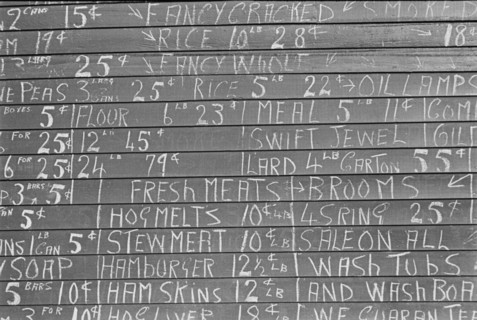 2 CANS 15¢ → FANCY CRACKED ↙ SMOKED
19¢ ↘ RICE 10 LB 28¢ → 18¢
3 LARG 25¢ → FANCY WHOLE ↙
PEAS 3 25¢ RICE 5 LB 22¢ → OIL LAMPS
BOXES 5¢ FLOUR 6 LB 23¢ MEAL 5 LB 11¢ COM
FOR 25¢ 12 LB 45¢ SWIFT JEWEL GIL
6 FOR 25¢ 24 LB 79¢ LARD 4 LB CARTON 55¢
3 BARS 5¢ FRESH MEATS → BROOMS ↙
5¢ HOG MELTS 10¢ LB 4 SRING 25¢
1 LB CAN 5¢ STEW MEAT 10¢ LB SALE ON ALL
SOAP HAMBURGER 12½¢ LB WASH TUBS
5 BARS 10¢ HAM SKINS 12¢ LB AND WASH BOA
3 FOR 10¢ HOG LIVER 18¢ LB WE GUARANTEE